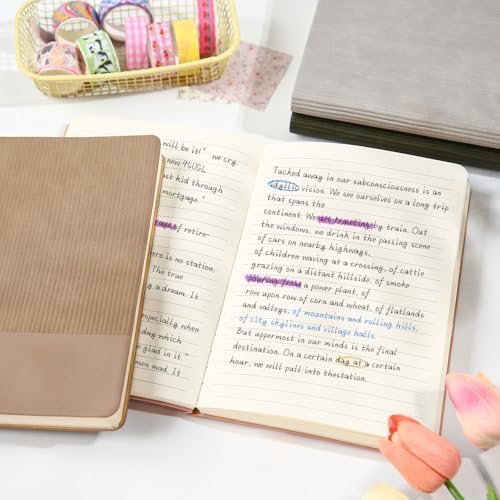 will be it!" we cry.
new 450SL
ast kid through
mortgage."
f retire-
ere is no station,
The true
y a dream. It
especially when
day which
glad in it."
men mad. It
Tucked away in our subconsciousness is an
idyllic vision. We see ourselves on a long trip
that spans the
continent. We are traveling by train. Out
the windows, we drink in the passing scene
of cars on nearby highways,
of children waving at a crossing, of cattle
grazing on a distant hillside, of smoke
pouring from a power plant, of
row upon row of corn and wheat, of flatlands
and valleys, of mountains and rolling hills,
of city skylines and village halls.
But uppermost in our minds is the final
destination. On a certain day at a certain
hour, we will pull into thestation.